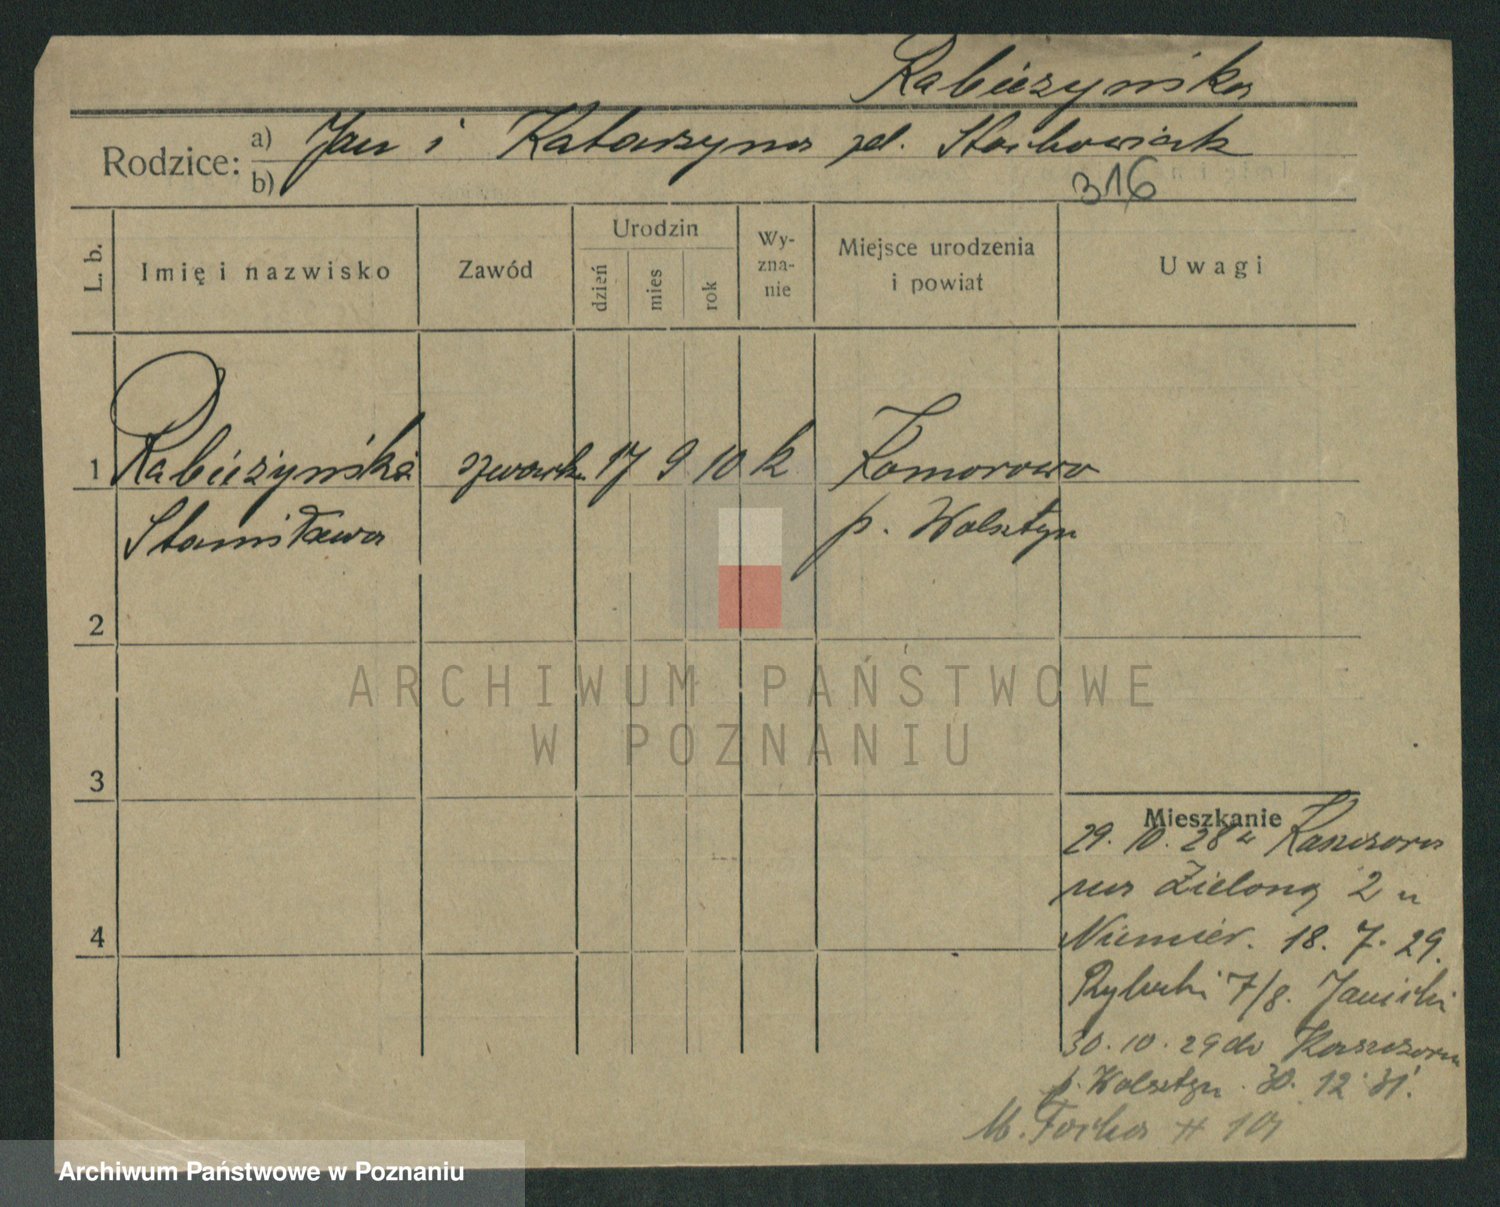 Rabieżyńska
Rodzice: a) Jan i Katarzyna zd. Stachowiak
b)
316
L. b.
Imię i nazwisko
Zawód
Urodzin
dzień
mies
rok
Wy-
zna-
nie
Miejsce urodzenia
i powiat
Uwagi
1 Rabieżyńska szwaczka 17 9 10 k Komorowo
Stanisława p. Wolsztyn
2
3
4
ARCHIWUM PAŃSTWOWE
W POZNANIU
Mieszkanie
29. 10. 28 z
na Zieloną 2 u
Niemier. 18. 7. 29.
Rybaki 7/8. Janicki
30. 10. 29 do
p. Wolsztyn. 30. 12. 31.
M. Focha
Archiwum Państwowe w Poznaniu